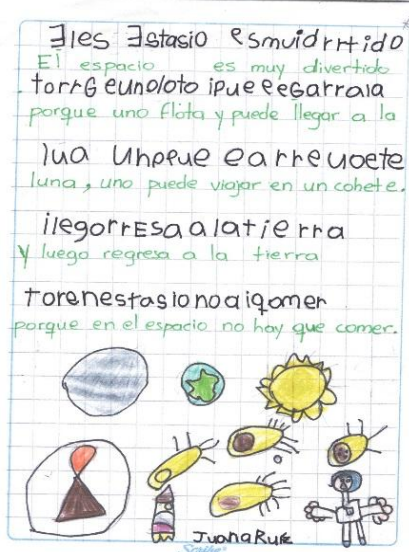 Ǝles Ǝstasio esmuidrrtido
El espacio es muy divertido
torrG eunoloto ipueeeGarrala
porque uno flota y puede llegar a la
lua Unppue earreuoete
luna, uno puede viajar en un cohete.
ilegorrEsaalatierra
y luego regresa a la tierra
torenestasionoaiqomer
porque en el espacio no hay que comer.